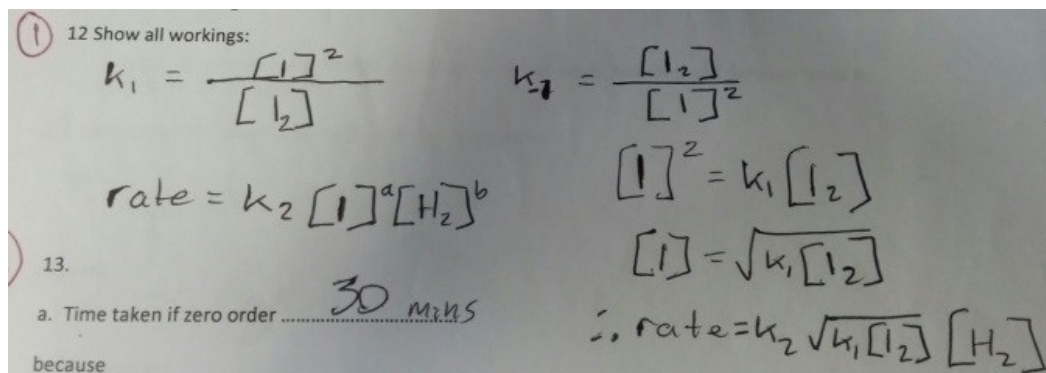 ① 12 Show all workings:
k₁ = [I]² / [I₂]
rate = k₂ [I]ᵃ[H₂]ᵇ
k₋₁ = [I₂] / [I]²
[I]² = k₁[I₂]
[I] = √k₁[I₂]
∴ rate = k₂ √k₁[I₂] [H₂]
13.
a. Time taken if zero order ........30 mins
because